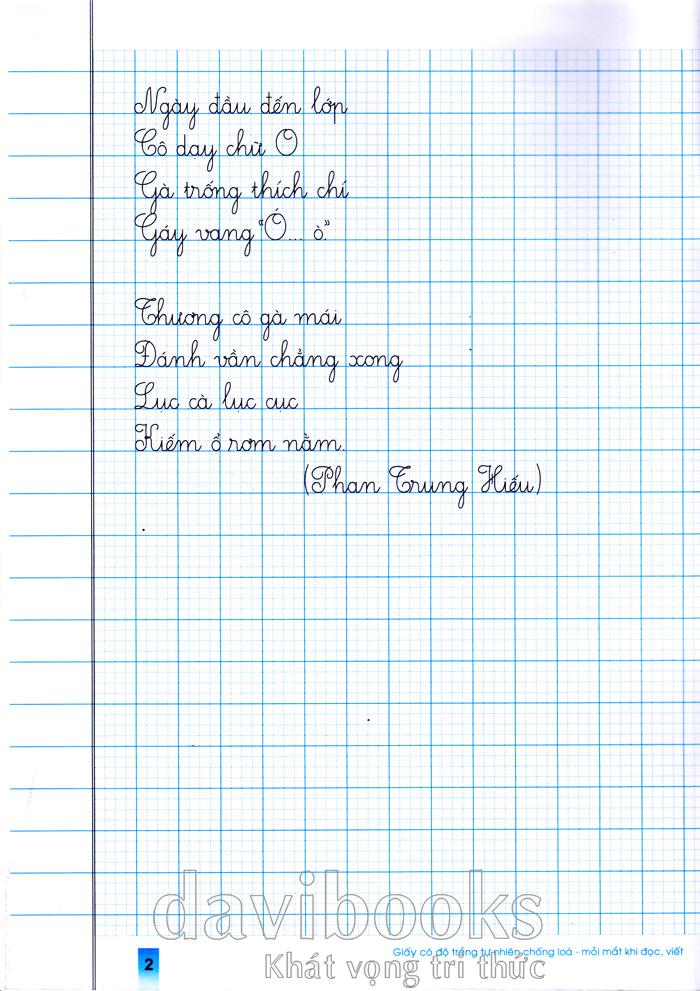 Ngày đầu đến lớp
Cô dạy chữ O
Gà trống thích chí
Gáy vang "Ó... ò."
Thương cô gà mái
Đánh vần chẳng xong
Lục cà lục cục
Kiếm ổ rơm nằm.
(Phan Trung Hiếu)
davibooks
Khát vọng tri thức
2
Giấy có độ trắng tự nhiên chống loá - mỏi mắt khi đọc, viết